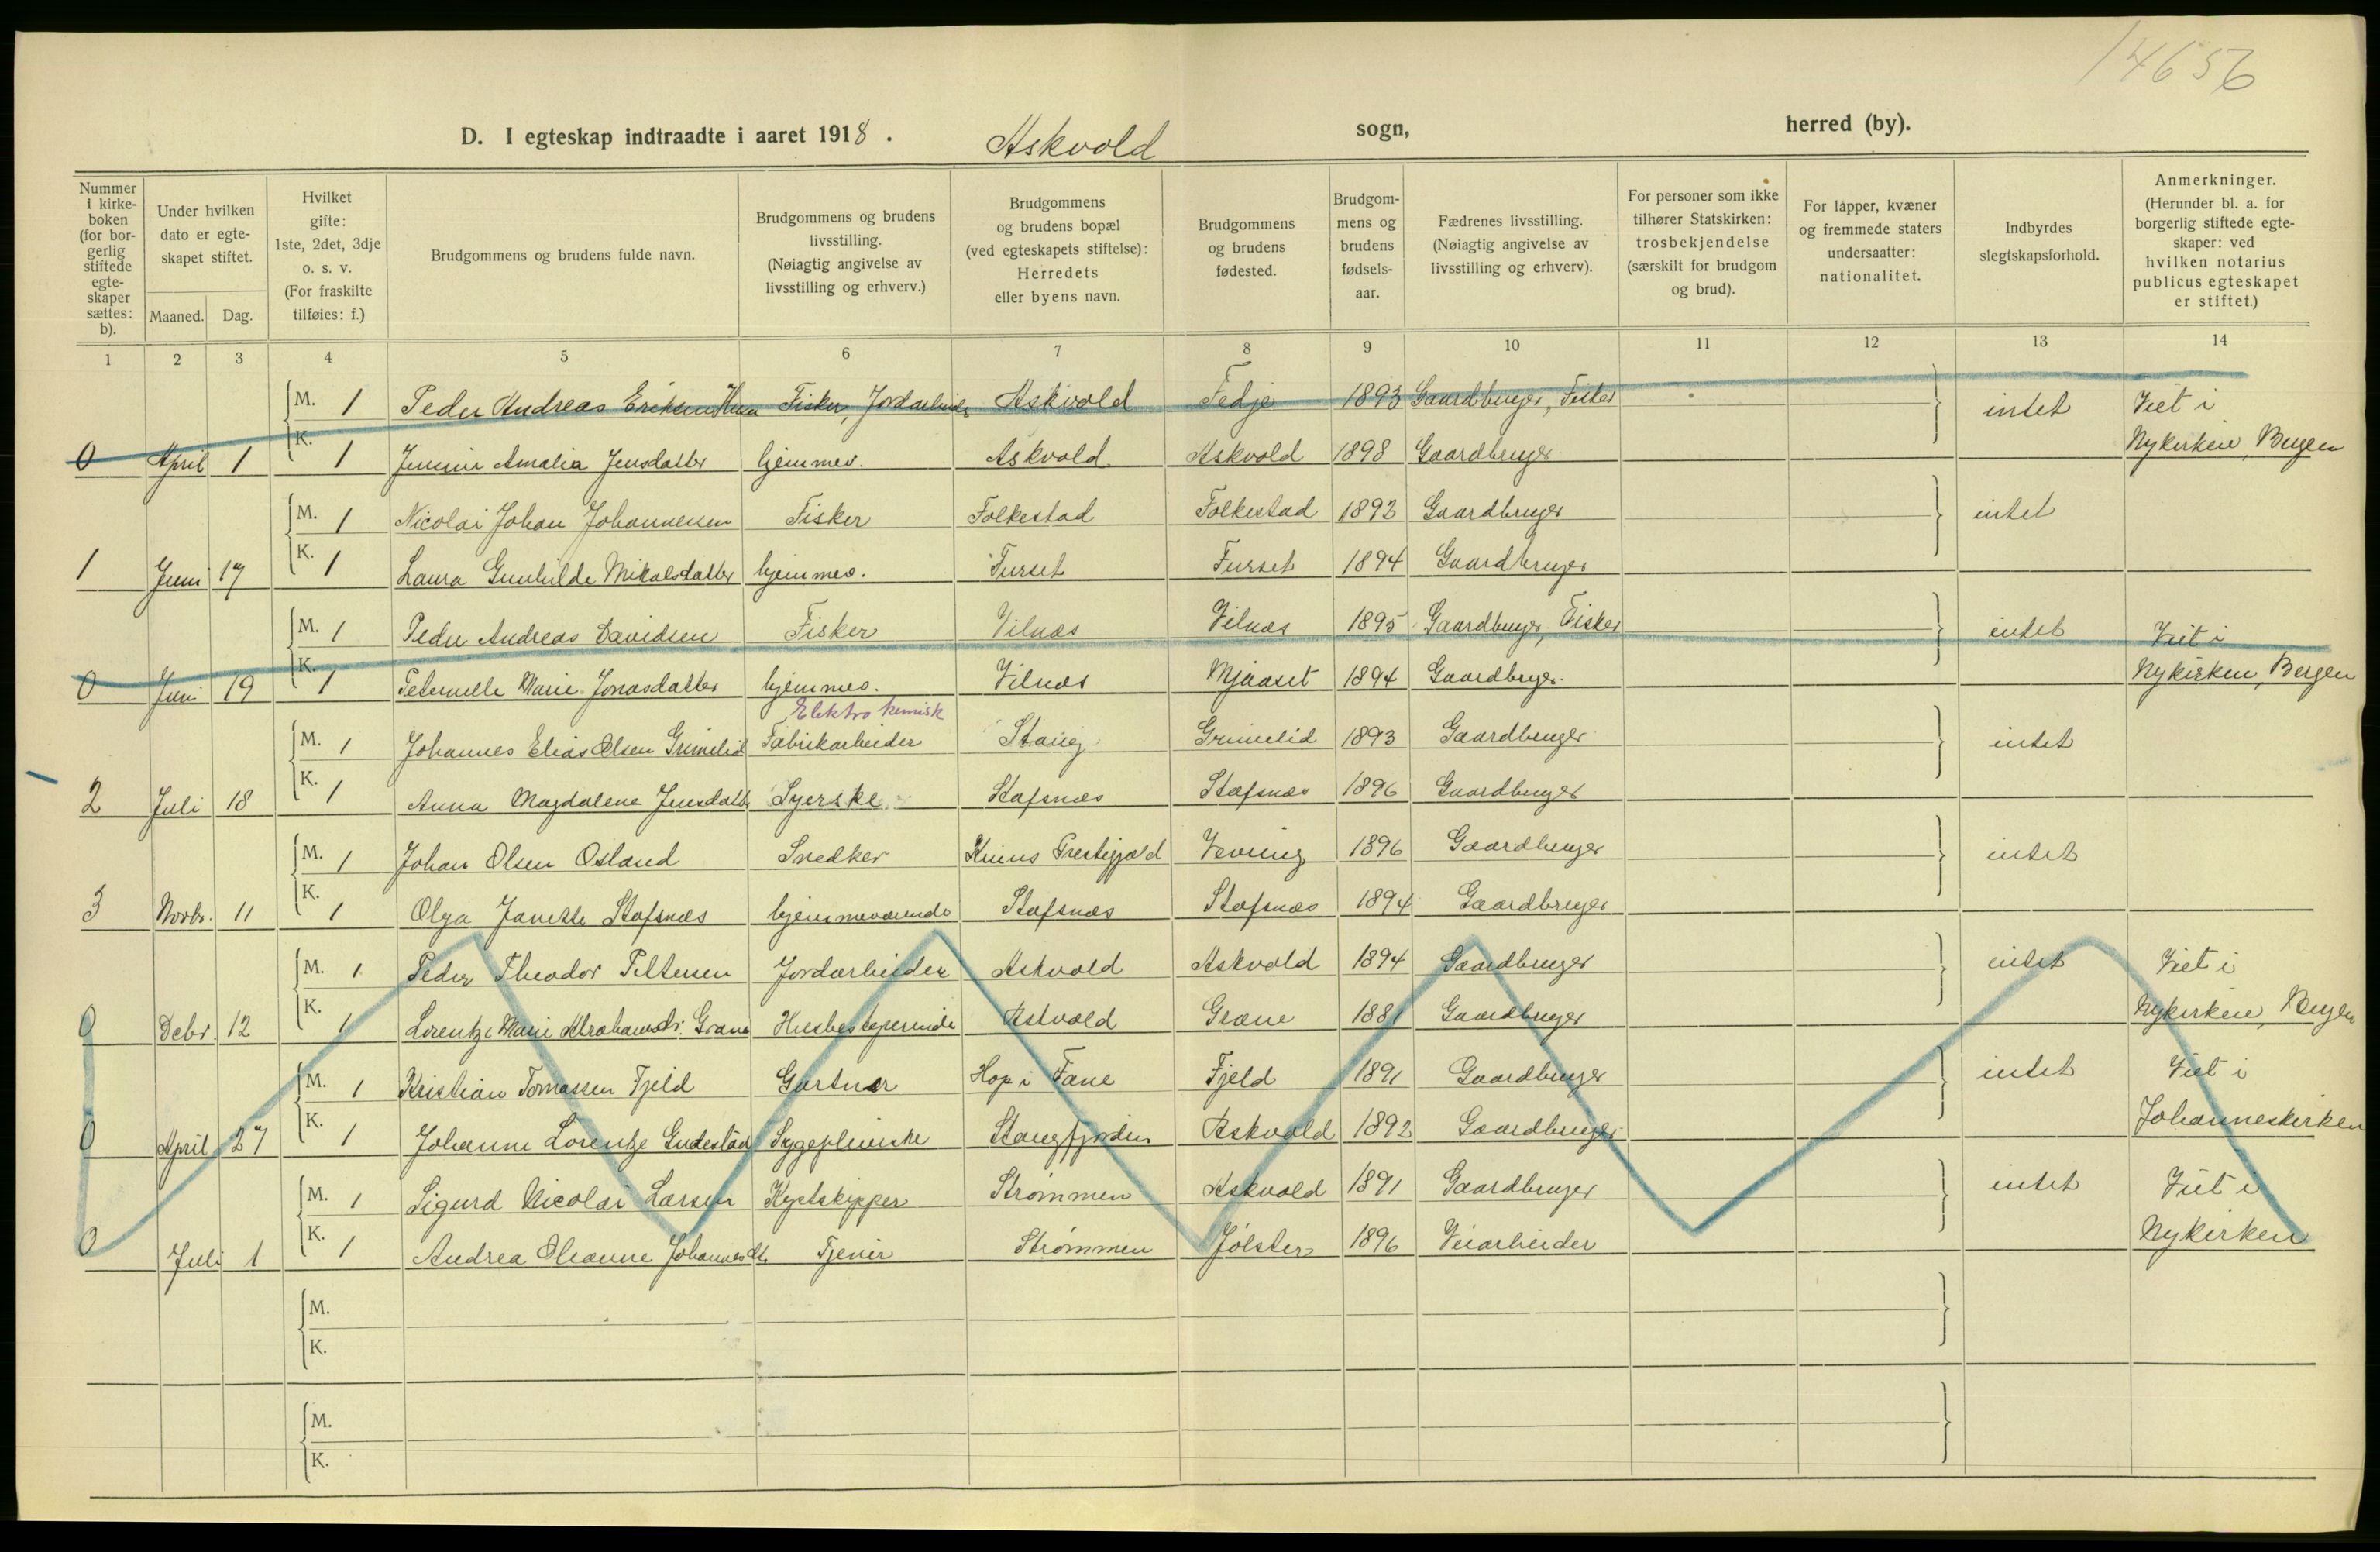 14656
D. I egteskap indtraadte i aaret 1918. Askvold sogn, herred (by).
Nummer i kirke-boken (for bor-gerlig stiftede egte-skaper sættes: b).
Under hvilken dato er egte-skapet stiftet.
Maaned. Dag.
Hvilket gifte: 1ste, 2det, 3dje o. s. v. (For fraskilte tilføies: f.)
Brudgommens og brudens fulde navn.
Brudgommens og brudens livsstilling. (Nøiagtig angivelse av livsstilling og erhverv.)
Brudgommens og brudens bopæl (ved egteskapets stiftelse): Herredets eller byens navn.
Brudgommens og brudens fødested.
Brudgom-mens og brudens fødsels-aar.
Fædrenes livsstilling. (Nøiagtig angivelse av livsstilling og erhverv).
For personer som ikke tilhører Statskirken: trosbekjendelse (særskilt for brudgom og brud).
For lapper, kvæner og fremmede staters undersaatter: nationalitet.
Indbyrdes slegtskapsforhold.
Anmerkninger. (Herunder bl. a. for borgerlig stiftede egte-skaper: ved hvilken notarius publicus egteskapet er stiftet.)
1 2 3 4 5 6 7 8 9 10 11 12 13 14
M. 1 Peder Andreas Eriksen Fisker, Jordarbeider Askvold Fedje 1893 Gaardbruger, Fisker intet Viet i
0 April 1 K. 1 Jensine Amalia Jensdatter hjemmev. Askvold Askvold 1898 Gaardbruger Nykirken, Bergen
M. 1 Nicolai Johan Johannessen Fisker Folkestad Folkestad 1893 Gaardbruger intet
1 Juni 17 K. 1 Laura Gunhilde Mikalsdatter hjemmev. Furset Furset 1894 Gaardbruger
M. 1 Peder Andreas Davidsen Fisker Vilnæs Vilnæs 1895 Gaardbruger, Fisker intet Viet i
0 Juni 19 K. 1 Peternelle Marie Jonasdatter hjemmev. Vilnæs Mjaaset 1894 Gaardbruger. Nykirken, Bergen
Elektro kemisk
M. 1 Johannes Elias Olsen Grimelid Fabrikarbeider Stang Grimelid 1893 Gaardbruger intet
2 Juli 18 K. 1 Anna Magdalene Jensdatter Syerske Stafsnæs Stafsnæs 1896 Gaardbruger
M. 1 Johan Olsen Osland Snedker Kinns Prestegjæld Vevring 1896 Gaardbruger intet
3 Novbr. 11 K. 1 Olga Janette Stafsnæs hjemmeværende Stafsnæs Stafsnæs 1894 Gaardbruger
M. 1 Peder Theodor Pettersen Jordarbeider Askvold Askvold 1894 Gaardbruger intet Viet i
0 Debr. 12 K. 1 Lorentze Marie Abrahamsdr. Grane Husbestyrerinde Askvold Grane 1881 Gaardbruger Nykirken, Bergen
M. 1 Kristian Tomassen Fjeld Gartner Hop i Fane Fjeld 1891 Gaardbruger intet Viet i
0 April 27 K. 1 Johanne Lorentze Gudestad Sygepleierske Stangfjorden Askvold 1892 Gaardbruger Johanneskirken
M. 1 Sigurd Nicolai Larsen Kystskipper Strømmen Askvold 1891 Gaardbruger intet Viet i
0 Juli 1 K. 1 Andrea Oleanne Johannesdt. Tjener Strømmen Jølster 1896 Veiarbeider Nykirken
M.
K.
M.
K.